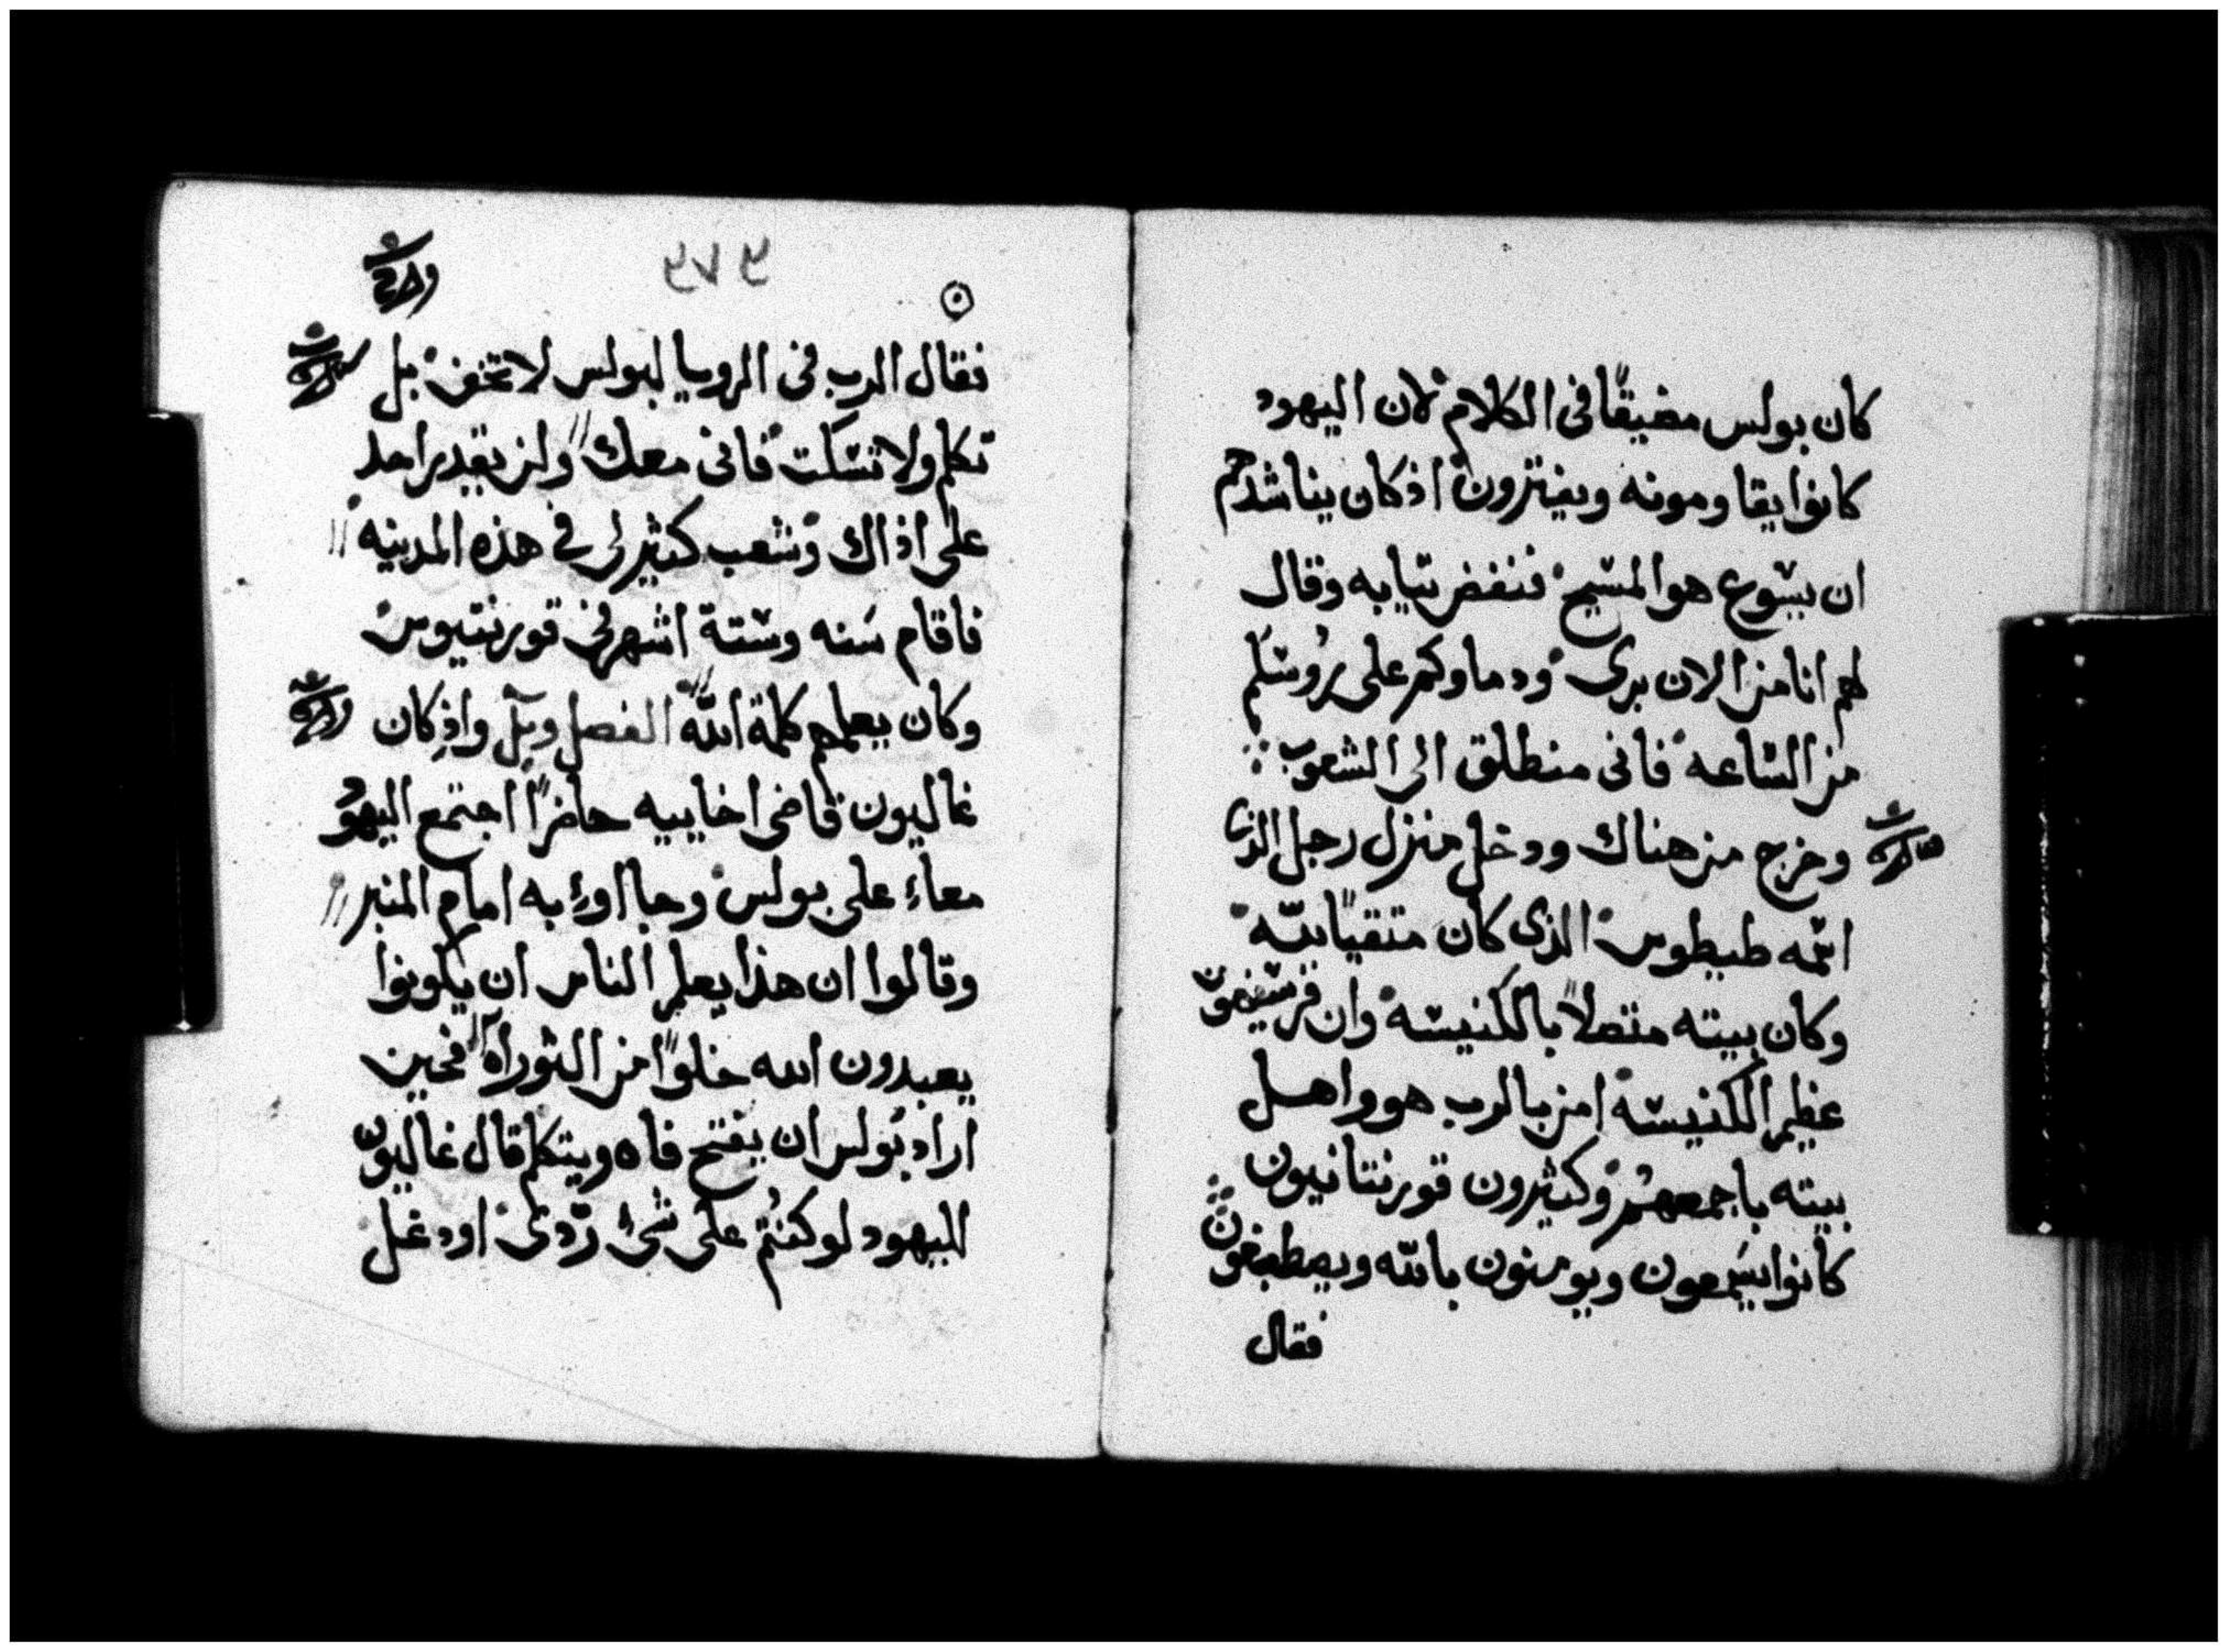 كان بولس مضيقًا فى الكلام لان اليهود
كانوا يقاومونه ويفترون اذ كان يناشدهم
ان يسوع هو المسيح فنفض تيابه وقال
لهم انا من الان برى ودماوكم على روسكم
من الساعه فانى منطلق الى الشعوب
وخرج من هناك ودخل منزل رجل الذى
اسمه طيطوس الذى كان متقيًا لله
وكان بيته متصلاً بالكنيسه وان
عظيم الكنيسه امن بالرب هو واهل
بيته باجمعهم وكثيرون قورنتانيون
كانوا يسمعون ويومنون بالله ويصطبغون
فقال
٩٧٩
فقال الرب فى الرويا لبولس لا تخف بل
تكلم ولا تسكت فانى معك ولن يقدر احد
على اذاك وشعب كثير لى فى هذه المدينه
فاقام سنه وستة اشهر فى قورنتيوس
وكان يعلمهم كلمة الله الفصل واذ كان
غاليون قاضى اخاييه حاضرًا اجتمع اليهود
معاء على بولس وجااوء به امام المنبر
وقالوا ان هذا يعلم الناس ان يكونوا
يعبدون الله خلوًا من التوراه فحين
اراد بولس ان يفتح فاه ويتكلم قال غاليون
لليهود لو كنتم على شئ ردى او دغل